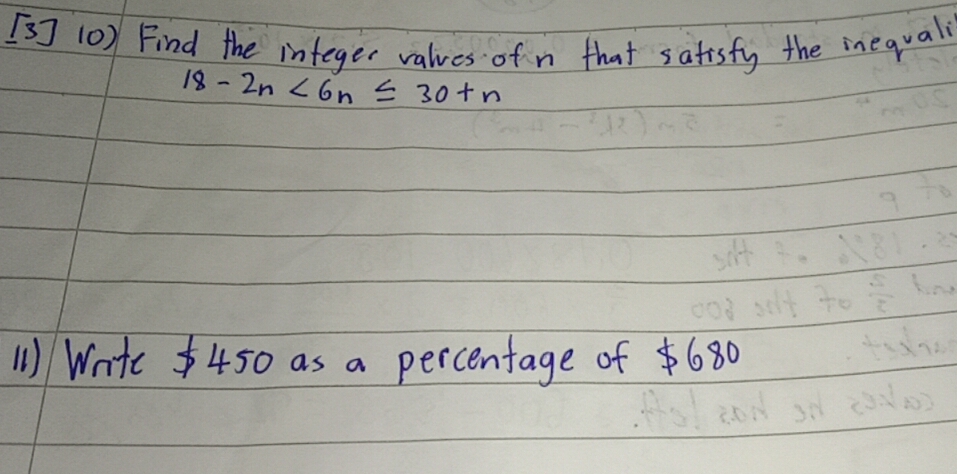 [3] 10) Find the integer values of n that satisfy the inequali
18 - 2n < 6n ≤ 30 + n
11) Write $450 as a percentage of $680